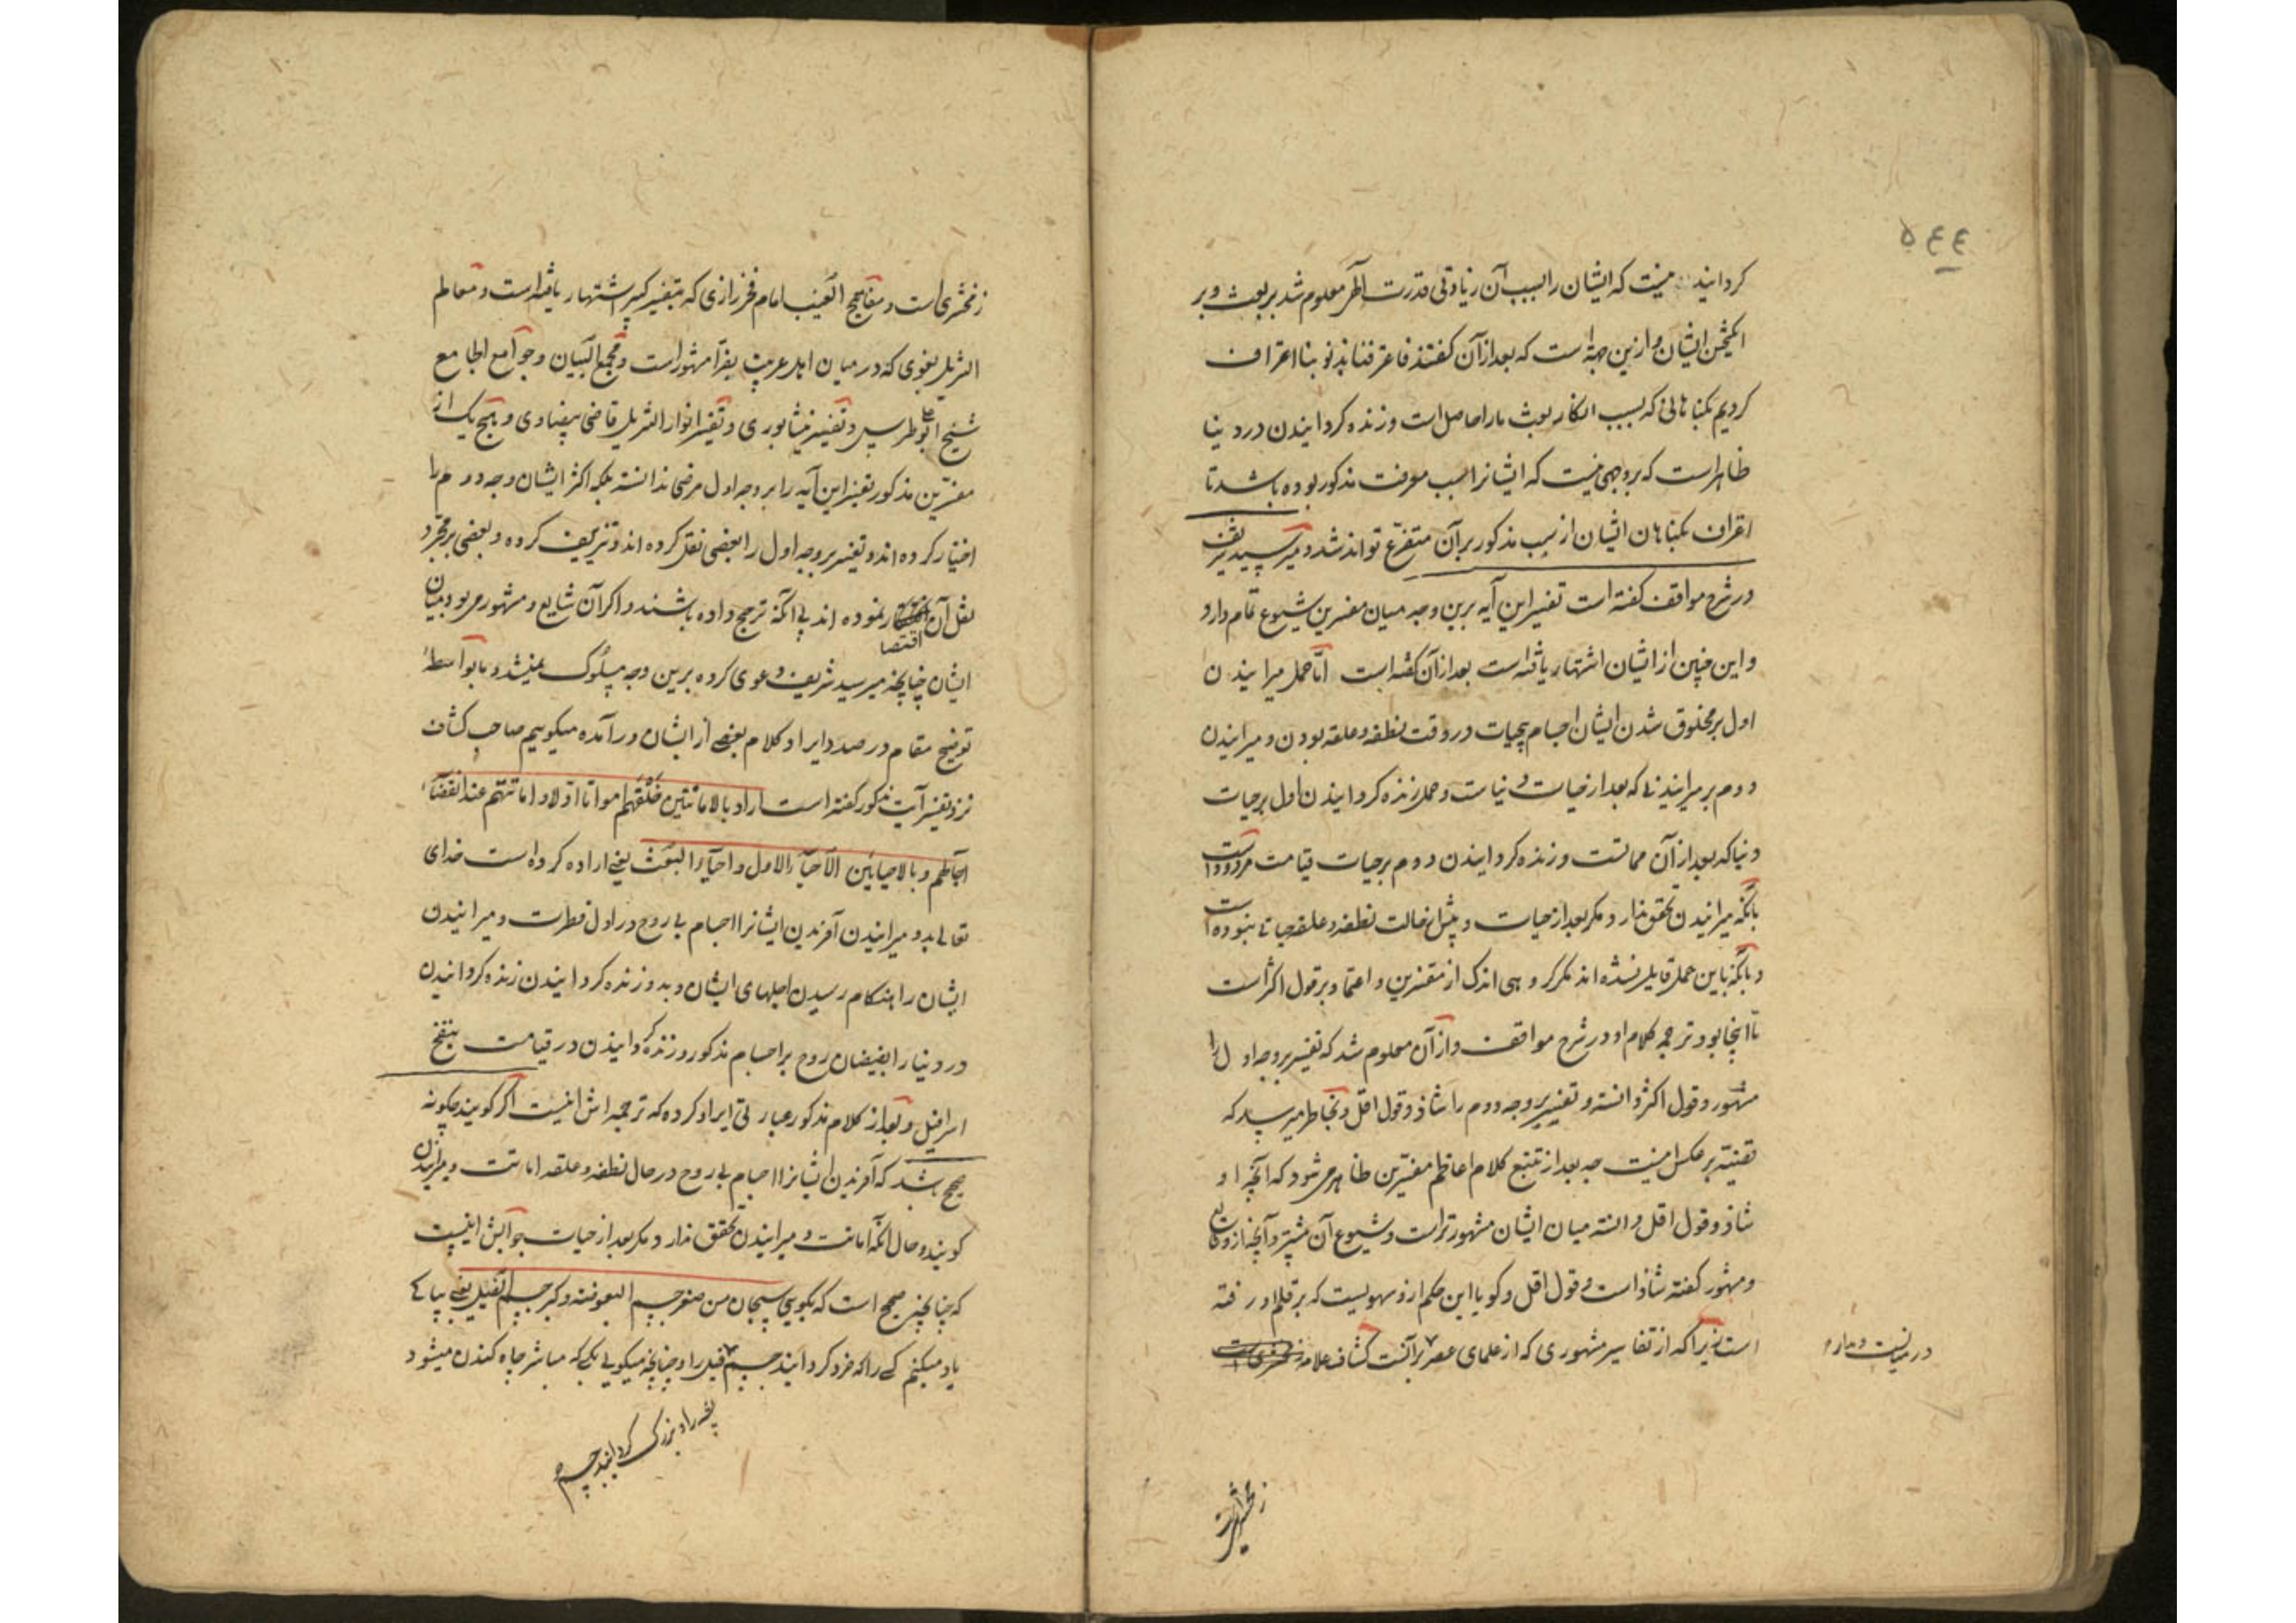 ۵۴۴
کردانید نیست که ایشان را بسبب آن زیادتی قدرت الهی معلوم شد بر بعث و بر
انکیختن ایشان و ازین جهة است که بعد از آن کفتند فاعترفنا بذنوبنا اعتراف
کردیم بکناهانی که بسبب انکار بعث ما را حاصل است و زنده کردانیدن در دنیا
ظاهر است که بر وجهی نیست که ایشانرا سبب معرفت مذکور بوده باشد تا
اقراف بکناهان ایشان از سبب مذکور بر آن متفرع تواند شد و میر سید شریف
در شرح مواقف کفته است تفسیر این آیه برین وجه میان مفسرین شیوع تمام دارد
و این چنین از ایشان اشتهار یافته است بعد از آن کفته است اما حمل میرانیدن
اول بر مخلوق شدن ایشان اجسام بیحیات در وقت نطفه و علقه بودن و میرانیدن
دوم بر میرانیدنی که بعد از حیات دنیاست و حمل زنده کردانیدن اول بر حیات
دنیا که بعد از آن مماتست و زنده کردانیدن دوم بر حیات قیامت مردود است
بآنکه میرانیدن تحقق ندارد مکر بعد از حیات و پیش از حالت نطفه و علقه حیاتی نبوده است
و بآنکه باین حمل قایل نشده اند مکر کروهی اندک از مفسرین و اعتماد بر قول اکثر است
تا اینجا بود ترجمه کلام او در شرح مواقف و از آن معلوم شد که تفسیر بر وجه اول را
مشهور و قول اکثر دانسته و تفسیر بر وجه دوم را شاذ و قول اقل و بخاطر میرسد که
قضیه بر عکس اینست چه بعد از تتبع کلام اعاظم مفسرین ظاهر می شود که آنچه او
شاذ و قول اقل دانسته میان ایشان مشهورتر است و شیوع آن بیشتر و آنچه او شایع
و مشهور کفته شاذ است و قول اقل و کویا این حکم ازو سهویست که بر قلم او رفته
است زیرا که از تفاسیر مشهوری که از علمای عصر بر آنست کشاف علامه زمخشری است
زمخشریست
زمخشری است و مفاتیح الغیب امام فخر رازی که بتفسیر کبیر اشتهار یافته است و معالم
التنزیل بغوی که در میان اهل عربیت بفرّا مشهور است و مجمع البیان و جوامع الجامع
شیخ ابو علی طبرسی و تفسیر نیشابوری و تفسیر انوار التنزیل قاضی بیضاوی و هیچ یک از
مفسرین مذکور تفسیر این آیه را بر وجه اول مرضی ندانسته بلکه اکثر ایشان وجه دوم را
اختیار کرده اند و تفسیر بر وجه اول را بعضی نقل کرده اند و تزییف کرده و بعضی بر مجرد
نقل آن اقتصار نموده اند بی آنکه ترجیح داده باشند و اکر آن شایع و مشهور می بود میان
ایشان چنانچه میر سید شریف دعوی کرده برین وجه سلوک نمیشد و ما بواسطه
توضیح مقام در صدد ایراد کلام بعضی از ایشان در آمده میکوییم صاحب کشاف
نزد تفسیر آیت مذکور کفته است اراد بالاماتتین خلقهم امواتا اولا و اماتتهم عند انقضاء
آجالهم و بالاحیائین الاحیاء الاول و احیاء البعث یعنی اراده کرده است خدای
تعالی بدو میرانیدن آفریدن ایشانرا اجسام بی روح در اول فطرت و میرانیدن
ایشان را هنکام رسیدن اجلهای ایشان و بدو زنده کردانیدن زنده کردانیدن
در دنیا را بفیضان روح بر اجسام مذکور و زنده کردانیدن در قیامت بنفخ
اسرافیل و بعد از کلام مذکور عبارتی ایراد کرده که ترجمه اش اینست اکر کویند چکونه
صحیح باشد که آفریدن ایشانرا اجسام بی روح در حال نطفه و علقه اماتت و میرانیدن
کویند و حال آنکه اماتت و میرانیدن تحقق ندارد مکر بعد از حیات جوابش اینست
که چنانچه صحیح است که بکویی سبحان من صغر جسم البعوضه و کبر جسم الفیل یعنی بپاکی
یاد میکنم کسی را که خرد کردانید جسم فیل را و چنانچه میکویی بکسی که مباشر چاه کندن میشود
پشه را و بزرک کردانید جسم